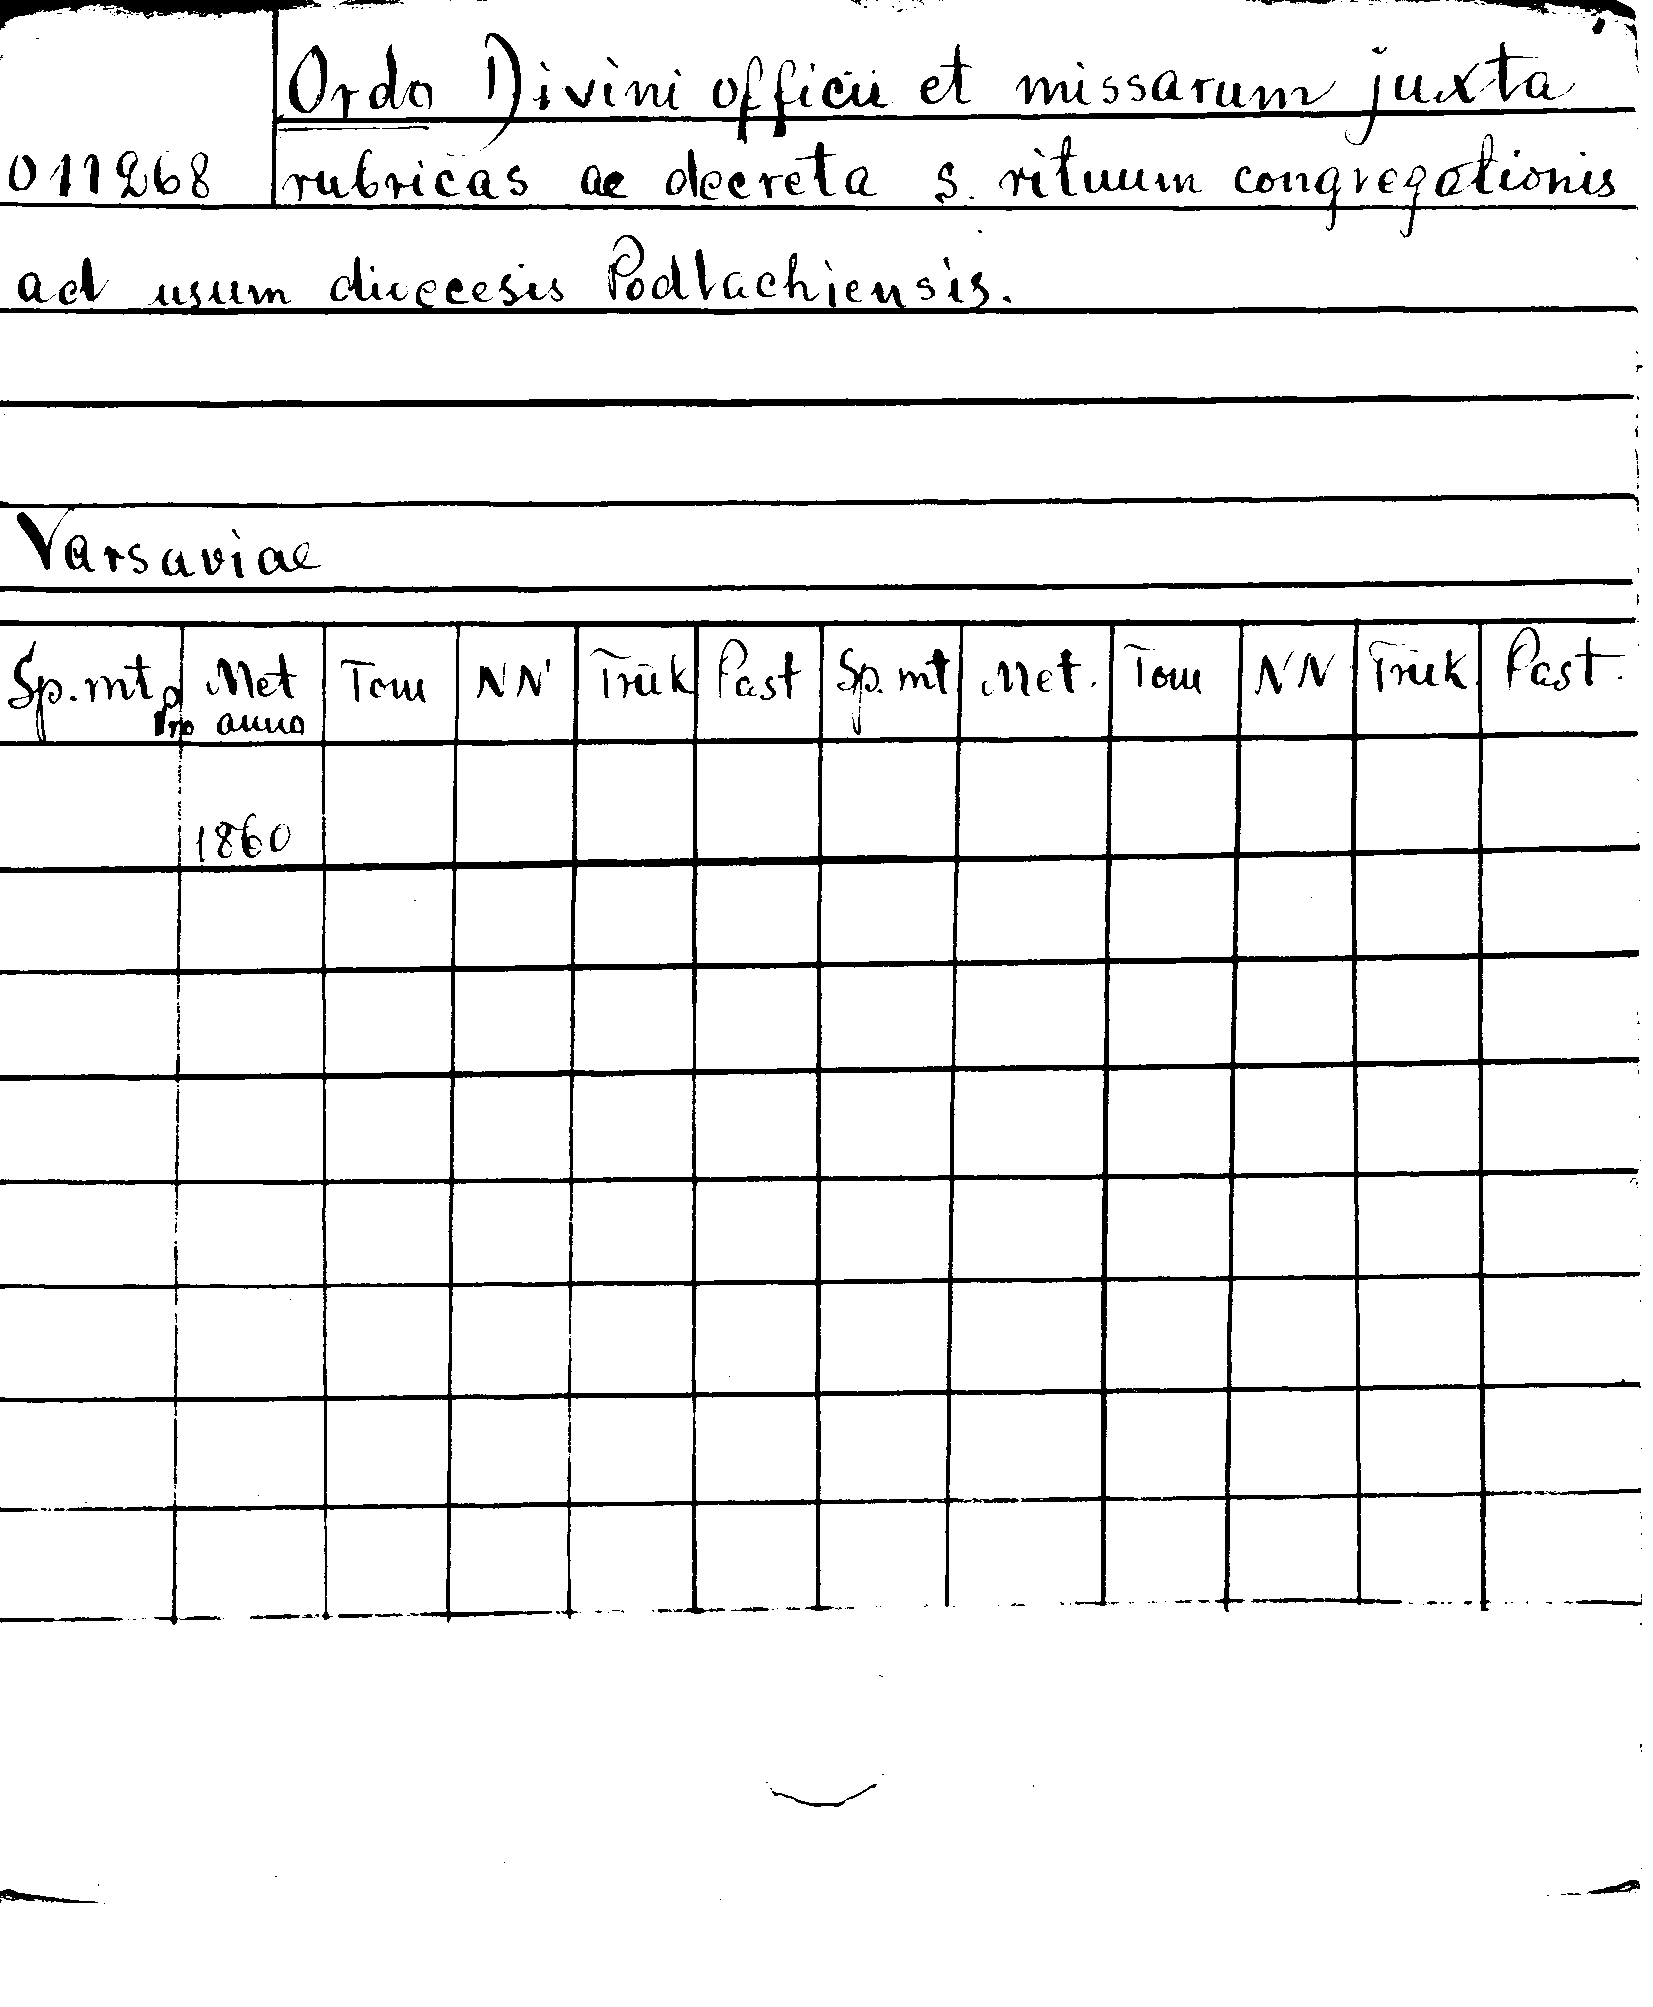 Ordo Divini officii et missarum juxta
011268 rubricas ac decreta s. rituum congregationis
ad usum dioecesis Podlachiensis.
Varsaviae
Sp. mt. Met Tom NN Truk Past Sp. mt Met. Tom NN Truk. Past.
Pro anno
1860